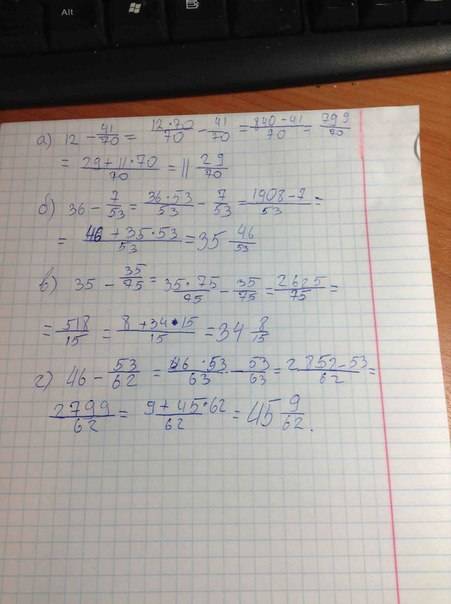 Alt
а) 12 - 41/70 = 12·70/70 - 41/70 = 840-41/70 = 799/70
= 29+11·70/70 = 11 29/70
б) 36 - 7/53 = 36·53/53 - 7/53 = 1908-7/53 =
= 46+35·53/53 = 35 46/53
в) 35 - 35/75 = 35·75/75 - 35/75 = 2625/75 =
= 518/15 = 8+34·15/15 = 34 8/15
г) 46 - 53/62 = 46·53/63 - 53/63 = 2852-53/62 =
2799/62 = 9+45·62/62 = 45 9/62.